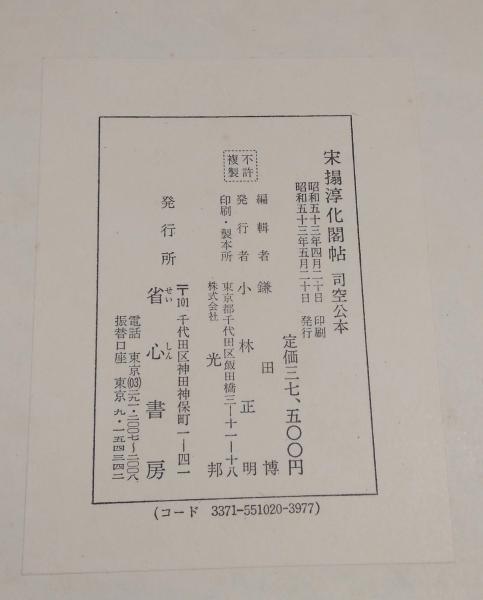 宋搨淳化閣帖 司空公本
昭和五十三年四月二十日 印刷
昭和五十三年五月二十日 発行
定価三七、五〇〇円
編輯者 鎌田博
発行者 小林正明
東京都千代田区飯田橋三―十一―十八
印刷・製本所 株式会社 光邦
不許
複製
〒101 千代田区神田神保町一―四一
発行所 省心書房
せいしん
電話 東京(03)二九一・二〇〇七〜二〇〇八
振替口座 東京 九・一五四三四二
(コード 3371-551020-3977)